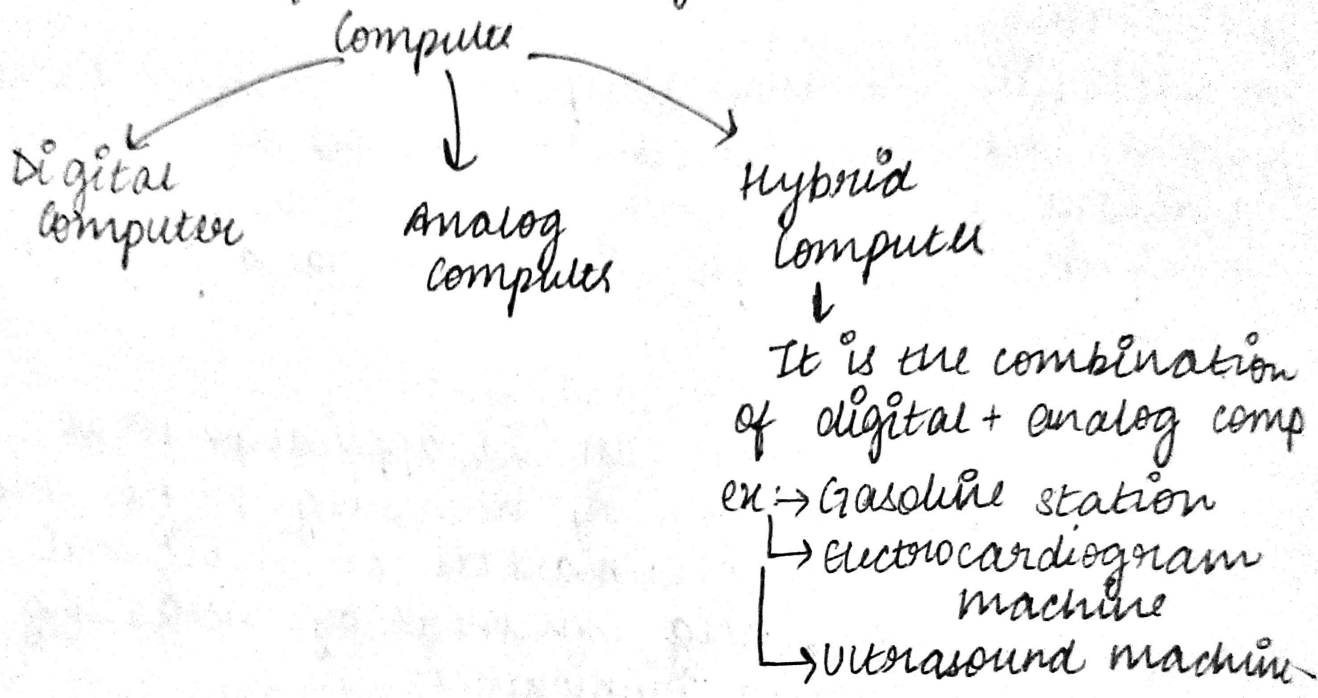 Computer
Digital
Computer
Analog
Computer
Hybrid
Computer
It is the combination
of digital + analog comp
ex:→ Gasoline station
→ Electrocardiogram
machine
→ Ultrasound machine